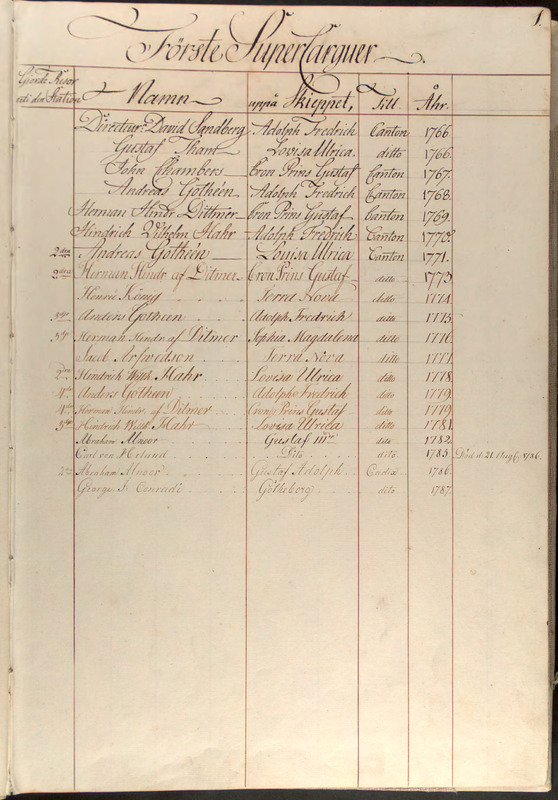 1.
Förste SuperCarguer
Giorde Resor
uti den Station Namn uppå Skieppet, Till Åhr.
Directeur: David Sandberg Adolph Fredrich Canton 1766.
Gustaf Thant Lovisa Ulrica ditto 1766.
John Chambers Cron Prins Gustaf Canton 1767.
Andreas Gotheén Adolph Fredrich Canton 1768.
Herman Hindr Dittmer Cron Prins Gustaf Canton 1769.
Hindrich Vilhelm Hahr Adolph Fredrich Canton 1770.
2dra Andreas Gotheén Lovisa Ulrica Canton 1771.
2dra Herman Hindr. af Ditmer Cron Prins Gustaf ditto 1773.
Henric König Terra Nova ditto 1774.
3die Anders Gotheen Adolph Fredrich ditto 1775.
3die Herman Hindr. af Ditmer Sophia Magdalena ditto 1776.
Jacob Arfwedson Terra Nova ditto 1777.
2dra Hindrich Willh. Hahr Lovisa Ulrica ditto 1778.
4de Anders Gotheen Adolph Fredrich ditto 1779.
4de Herman Hindr. af Ditmer Cron Prins Gustaf ditto 1779.
3die Hindrich Willh. Hahr Lovisa Ulrica ditto 1781.
Abraham Unoor Gustaf IIIie dito 1782.
Carl von Heland Dito dito 1785. Död d. 21 Aug 1786.
2dra Abraham Unoor Gustaf Adolph Cadix 1786.
George Fr. Conradi Götheborg dito 1787.